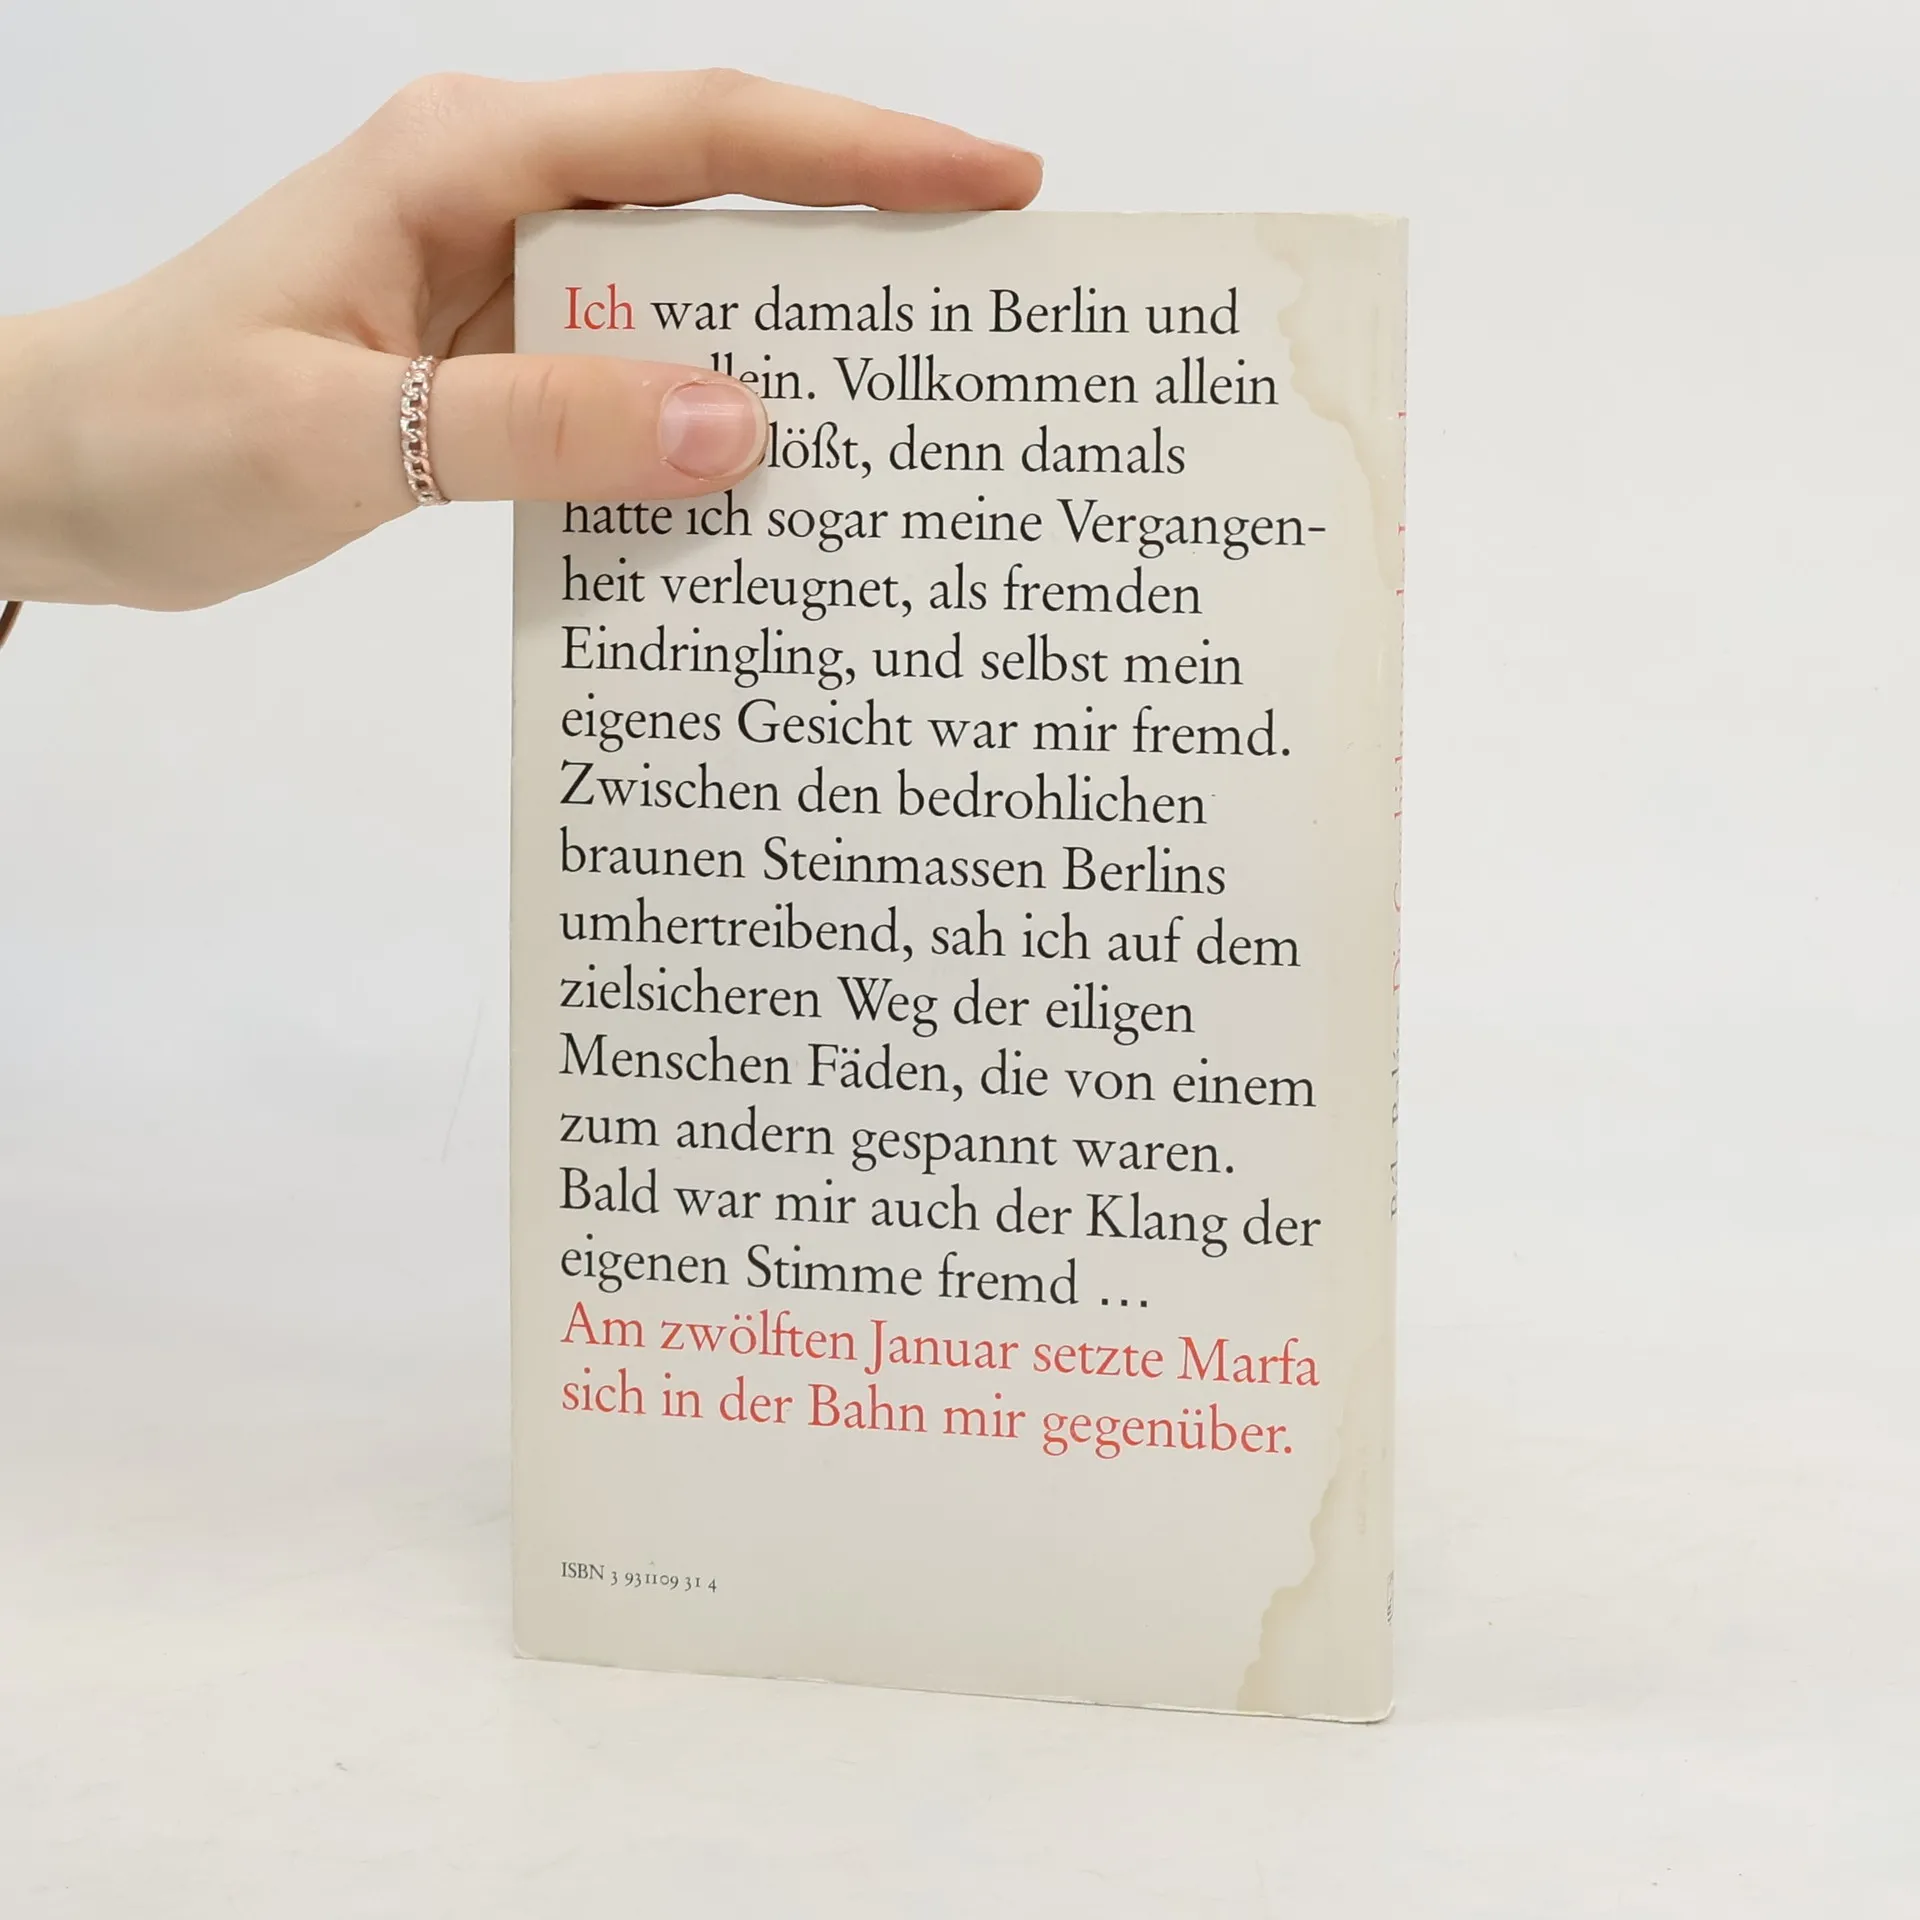 Ich war damals in Berlin und
Vollkommen allein
denn damals
hatte ich sogar meine Vergangen-
heit verleugnet, als fremden
Eindringling, und selbst mein
eigenes Gesicht war mir fremd.
Zwischen den bedrohlichen
braunen Steinmassen Berlins
umhertreibend, sah ich auf dem
zielsicheren Weg der eiligen
Menschen Fäden, die von einem
zum andern gespannt waren.
Bald war mir auch der Klang der
eigenen Stimme fremd ...
Am zwölften Januar setzte Marfa
sich in der Bahn mir gegenüber.
ISBN 3 931109 31 4